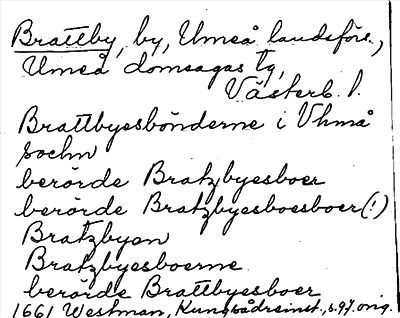 Brattby, by, Umeå landsförs.,
Umeå domsagas tg,
Västerb. l.
Brattbyesbönderne i Vhmå
sochn
berörde Bratzbyesboer
berörde Bratzbyesboesboer(!)
Bratzbyen
Bratzbyesboerne
berörde Brattbyesboer
1661 Westman, Kungsådreinst., s. 97. orig.